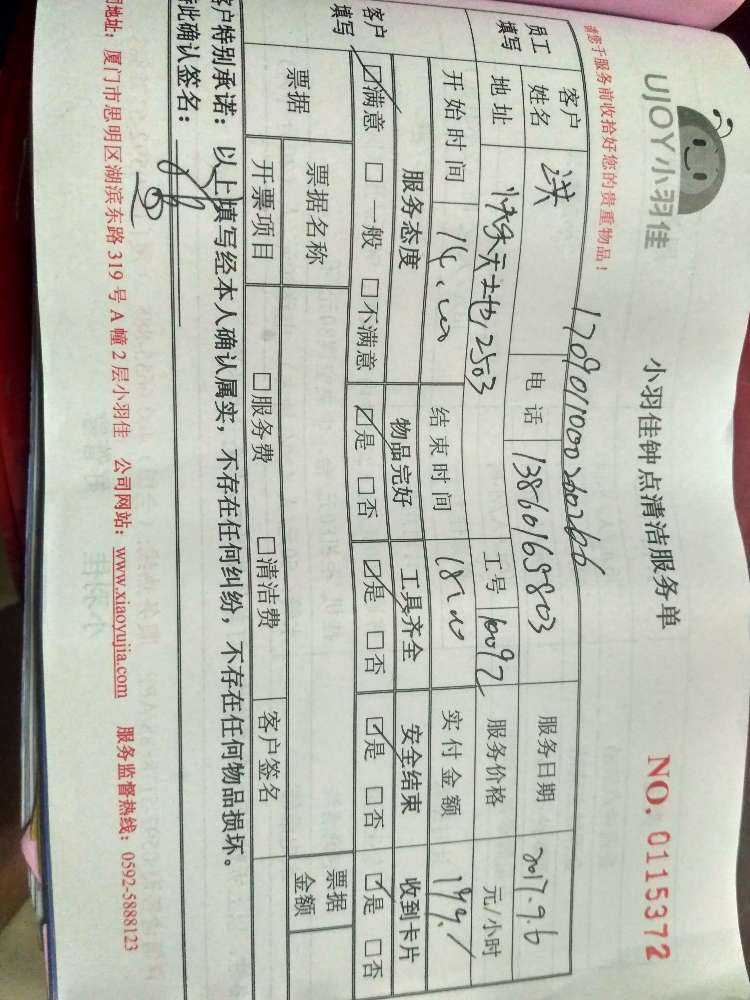 UJOY小羽佳
小羽佳钟点清洁服务单
NO. 0115372
请您于服务前收拾好您的贵重物品！
员工填写
客户姓名 洪 电话 13860165803 服务日期 2017.9.6
地址 2503 工号 10092 服务价格 元/小时
开始时间 14.00 结束时间 18.00 实付金额
客户填写
服务态度 物品完好 工具齐全 安全结束 收到卡片
☑满意 □一般 □不满意 ☑是 □否 ☑是 □否 ☑是 □否 ☑是 □否
票据 票据名称 票据金额
开票项目 □服务费 □清洁费 客户签名
客户特别承诺：以上填写经本人确认属实，不存在任何纠纷，不存在任何物品损坏。
特此确认签名：
司地址：厦门市思明区湖滨东路 319 号 A 幢 2 层小羽佳 公司网站：www.xiaoyujia.com 服务监督热线：0592-5888123